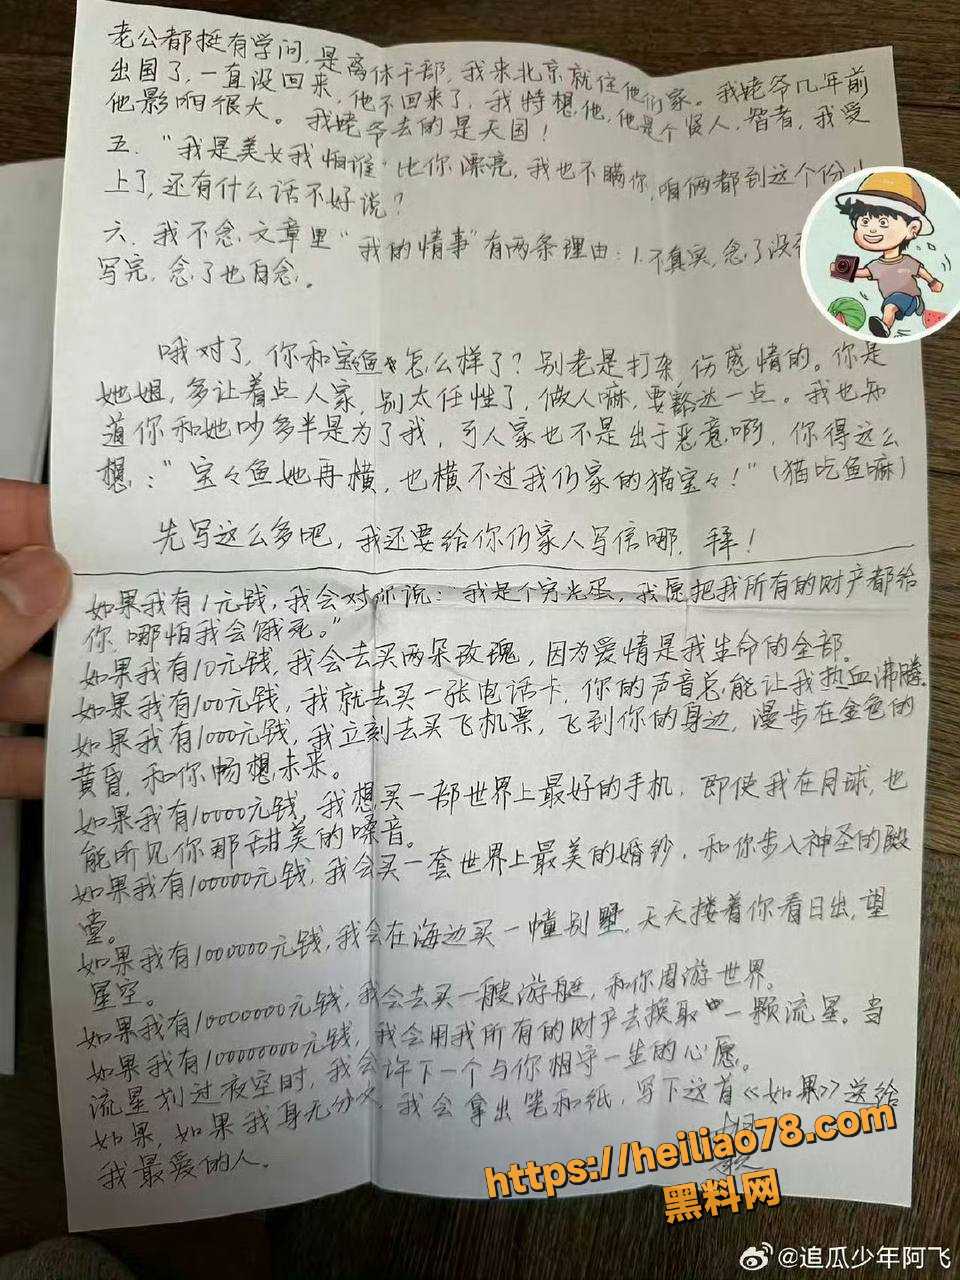 老公都挺有学问，是离休干部，我来北京就住他们家。我姥爷几年前
出国了，一直没回来，他不回来了，我特想他，他是个贤人，智者，我受
他影响很大。我姥爷去的是天国！
五．"我是美女我怕谁"比你漂亮，我也不瞒你，咱俩都到这个份
上了，还有什么话不好说？
六．我不念文章里"我的情事"有两条理由：1.不真实，念了没
写完，念了也白念．
哦对了，你和宝鱼怎么样了？别老是打杂，伤感情的。你是
她姐，多让着点人家，别太任性了，做人嘛，要豁达一点。我也知
道你和她吵多半是为了我，可人家也不是出于恶意啊，你得这么
想："宝々鱼她再横，也横不过我们家的猫宝々！"（猫吃鱼嘛）
先写这么多吧，我还要给你们家人写信哪，拜！
如果我有1元钱，我会对你说：我是个穷光蛋，我愿把我所有的财产都给
你，哪怕我会饿死。"
如果我有10元钱，我会去买两朵玫瑰，因为爱情是我生命的全部。
如果我有100元钱，我就去买一张电话卡，你的声音总能让我热血沸腾．
如果我有1000元钱，我立刻去买飞机票，飞到你的身边，漫步在金色的
黄昏，和你畅想未来。
如果我有10000元钱，我想买一部世界上最好的手机，即使我在月球，也
能听见你那甜美的嗓音。
如果我有100000元钱，我会买一套世界上最美的婚纱，和你步入神圣的殿
堂。
如果我有1000000元钱，我会在海边买一幢别墅，天天搂着你看日出，望
星空。
如果我有10000000元钱，我会去买一艘游艇，和你周游世界。
如果我有100000000元钱，我会用我所有的财产去换取一颗流星。当
流星划过夜空时，我会许下一个与你相守一生的心愿。
如果，如果我身无分文，我会拿出笔和纸，写下这首《如果》送给
我最爱的人．
https://heiliao78.com
黑料网
@追瓜少年阿飞